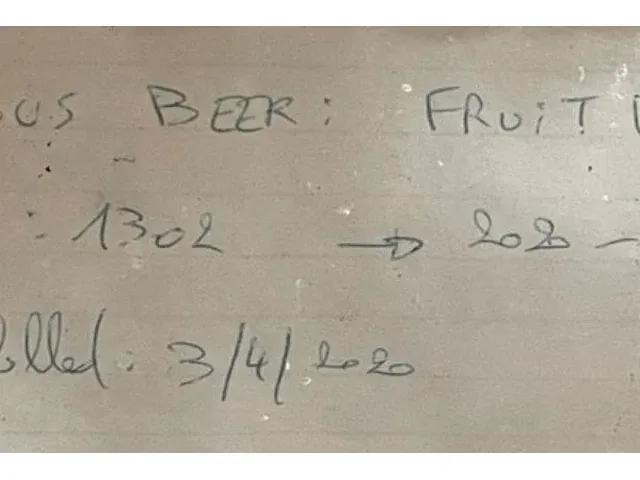 US BEER: FRUIT
: 1302 → 2020 -
lled: 3/4/2020